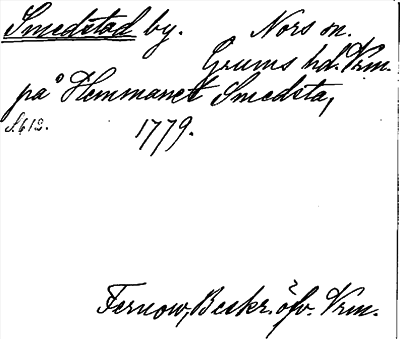 Smedstad by. Nors sn.
Grums hd. Vrm.
på Hemmanet Smedsta,
S. 612. 1779.
Fernow, Beskr. öfv. Vrm.